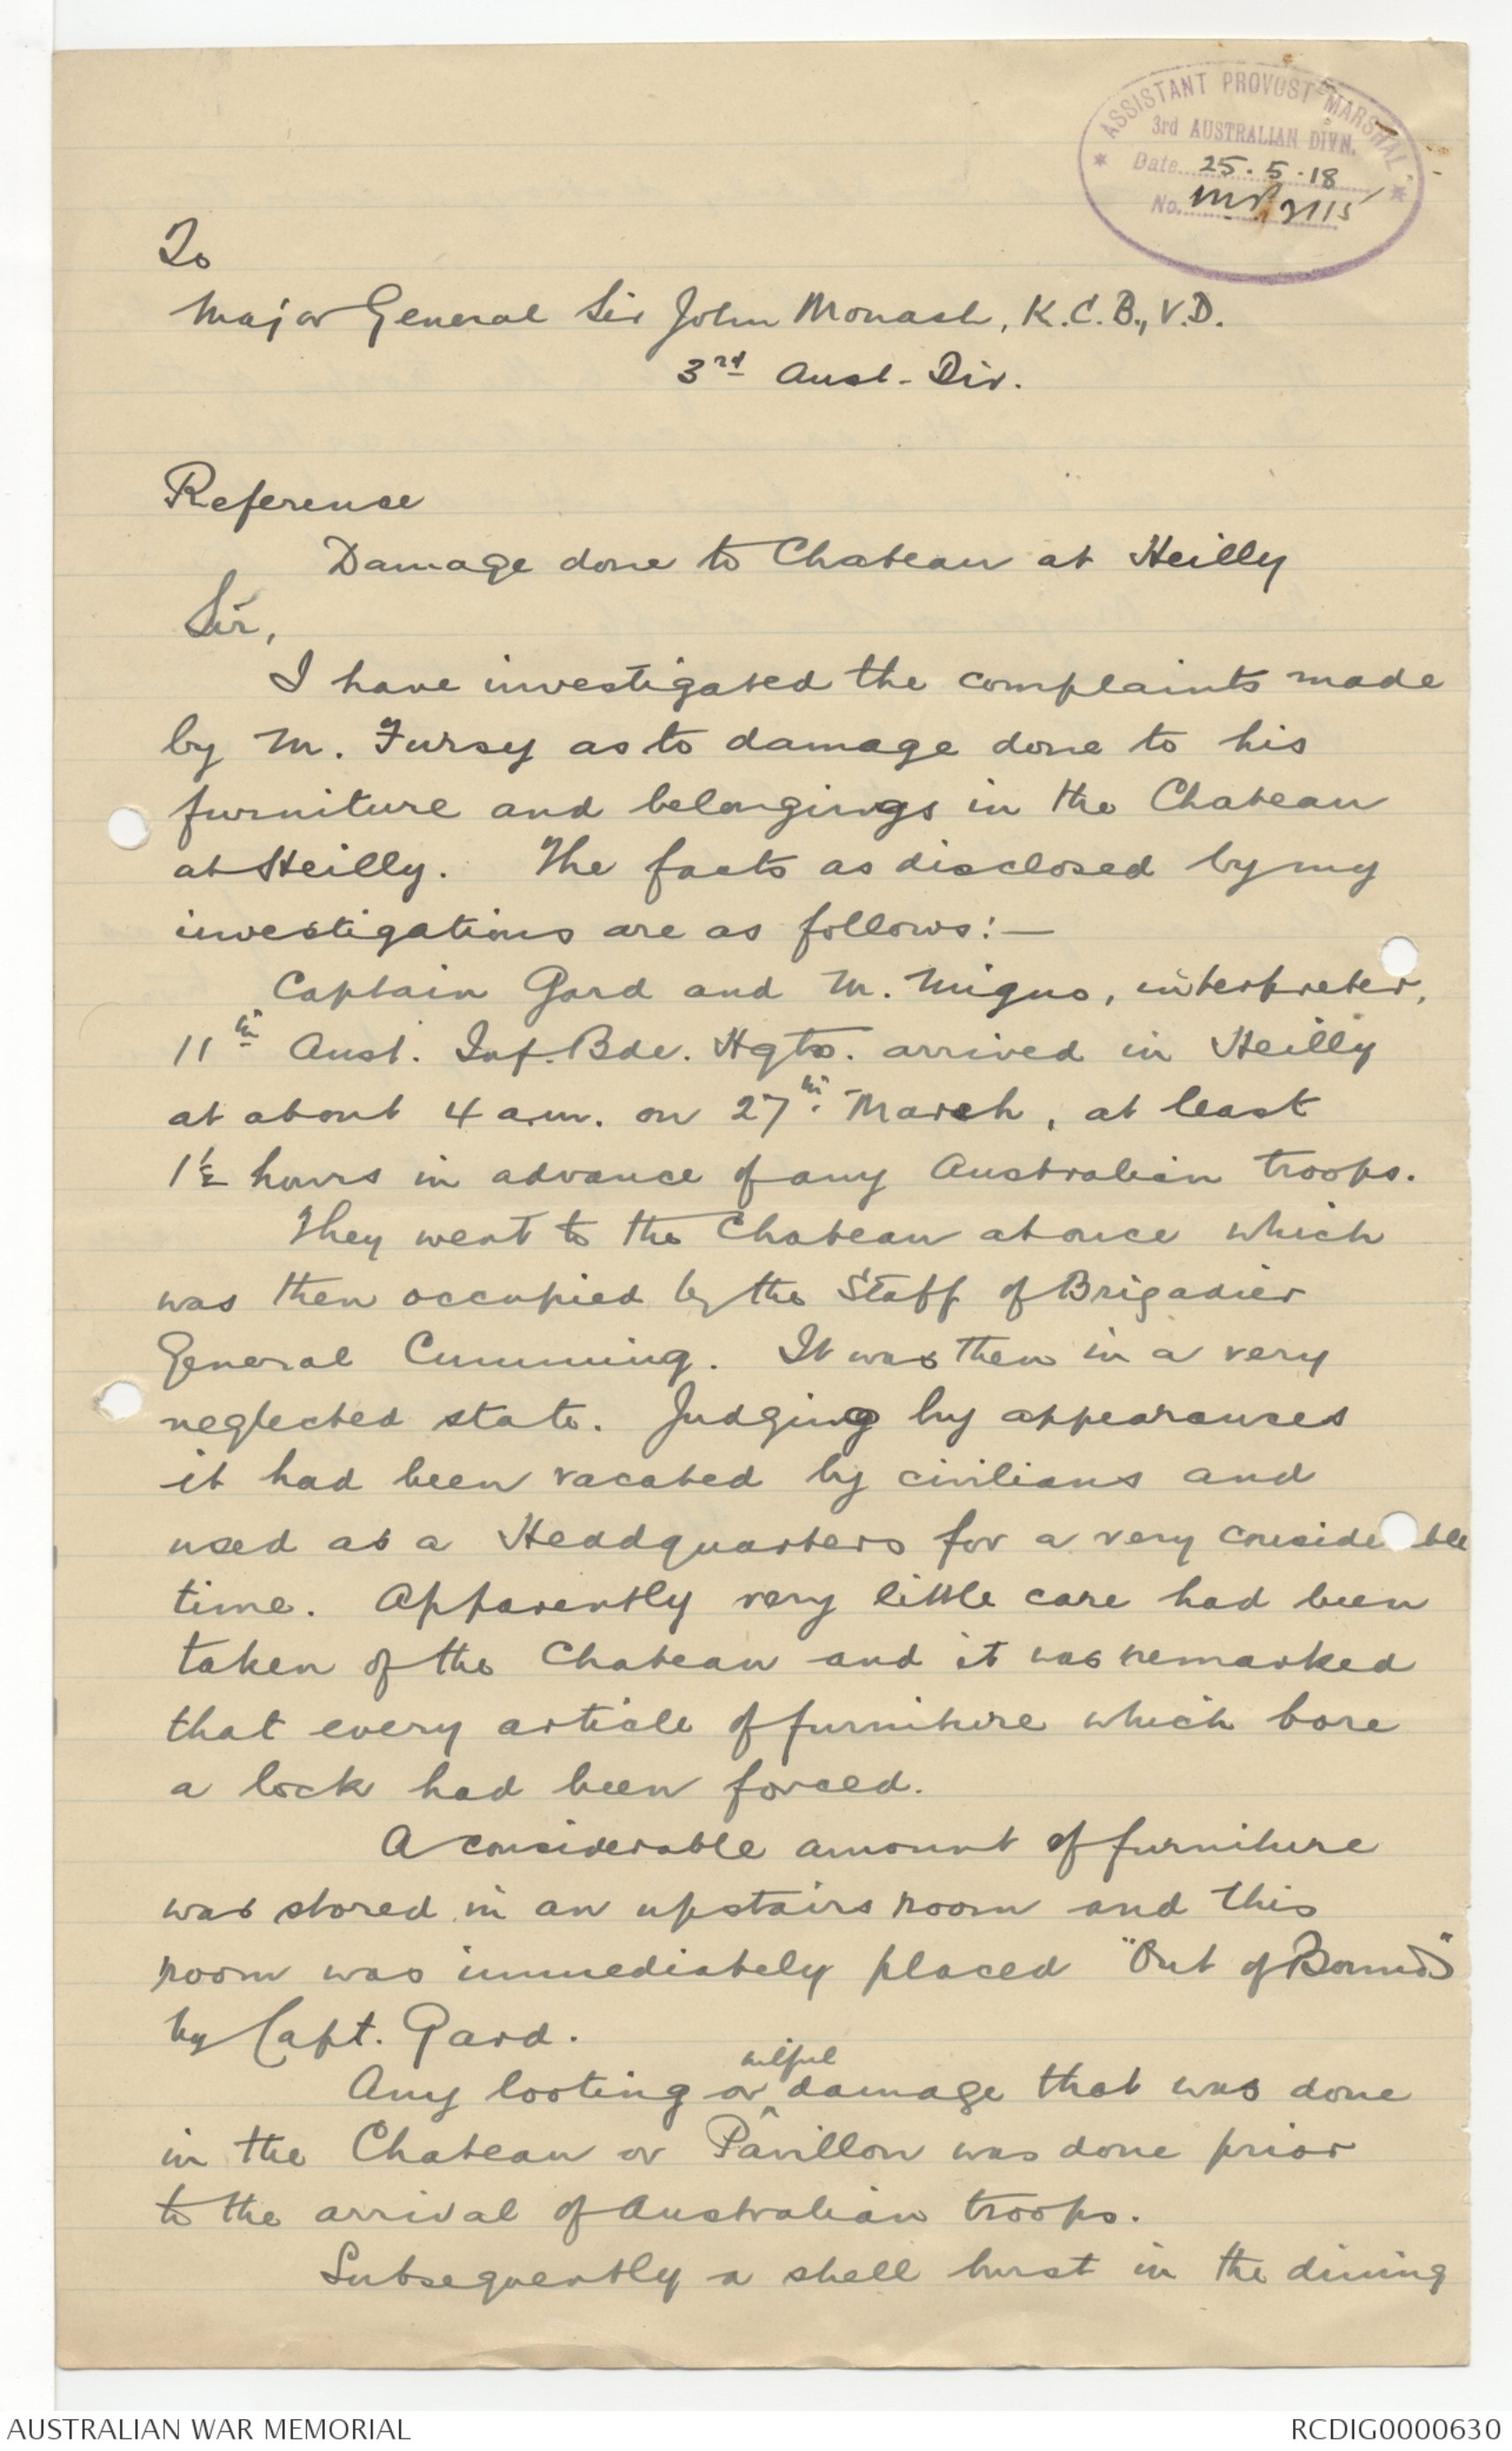 ASSISTANT PROVOST MARSHAL
3rd AUSTRALIAN DIVN.
Date 25.5.18
No.
To
Major General Sir John Monash, K.C.B., V.D.
3rd Aust. Div.
Reference
Damage done to Chateau at Heilly
Sir,
I have investigated the complaints made
by M. Fursy as to damage done to his
furniture and belongings in the Chateau
at Heilly. The facts as disclosed by my
investigations are as follows:-
Captain Gard and M. interpreter,
11th Aust. Inf. Bde. Hqts. arrived in Heilly
at about 4 a.m. on 27th. March, at least
1½ hours in advance of any Australian troops.
They went to the Chateau at once which
was then occupied by the Staff of Brigadier
General Cumming. It was then in a very
neglected state. Judging by appearances
it had been vacated by civilians and
used as a Headquarters for a very conside ble
time. Apparently very little care had been
taken of the Chateau and it was remarked
that every article of furniture which bore
a lock had been forced.
A considerable amount of furniture
was stored in an upstairs room and this
room was immediately placed "Out of Bounds"
by Capt. Gard.
Any looting or wilful damage that was done
in the Chateau or Pavillon was done prior
to the arrival of Australian troops.
Subsequently a shell burst in the dining
AUSTRALIAN WAR MEMORIAL
RCDIG0000630